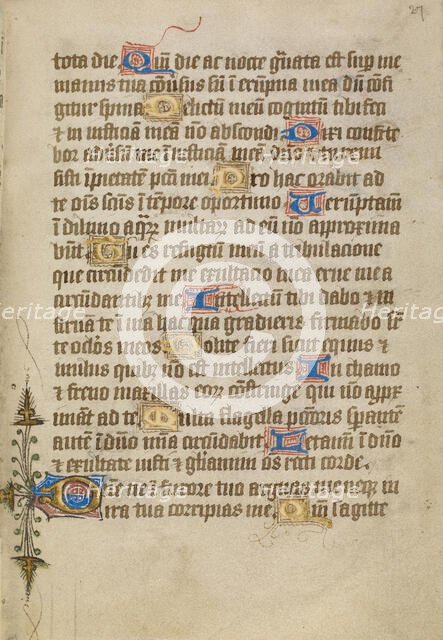 27
tota die. Qm̄ die ac nocte gͣuata est sup me
manus tua cōuersus sū ī erūpna mea dū cōfi
gitur spina. Delictū meū cognitum tibi feci
& in iusticiā meā nō abscondi. Dixi confite
bor adūsū me iusticiā meā dn̄o & tu remi
sisti īpietatē pccī mei. Pro hac orabit ad
te oīs scūs ī tēpore oportuno. Ueruptamē
ī diluuio aqꝝ multaꝝ ad eū nō approxima
būt. Tu es refugiū meū a tribulacione
que circūdedit me exultatio mea erue me a
circūdantibꝫ me. Intellectū tibi dabo & in
struā te ī uia hac qua gradieris firmabo sr̄
te oclōs meos. Nolite fieri sicut equus &
mulus quibꝫ nō est intellectus. In chamo
& freno maxillas eoꝝ cōstringe qui nō apprx
imāt ad te. Multa flagella pctōris sperantē
autē ī dn̄o mīa circūdabit. Letamī ī dn̄o
& exultate iusti & gl̄iamini os recti corde.
Dn̄e ne ī furore tuo arguas me neqꝫ in
ira tua corripias me. Qm̄ sagitte
Heritage
Heritage
Heritage
Heritage
Heritage
©